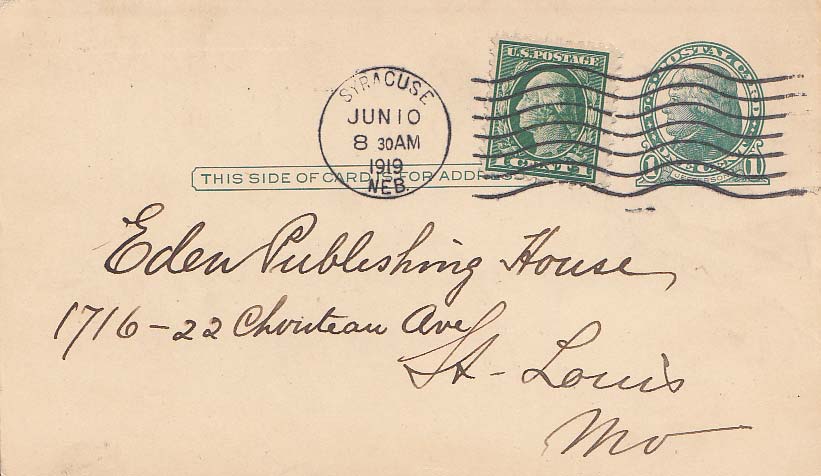 SYRACUSE
JUN 10
8 30 AM
1919
NEB.
U.S. POSTAGE
1 CENT 1
POSTAL CARD
1 1
JEFFERSON
THIS SIDE OF CARD IS FOR ADDRESS
Eden Publishing House
1716-22 Chouteau Ave
St-Louis
Mo